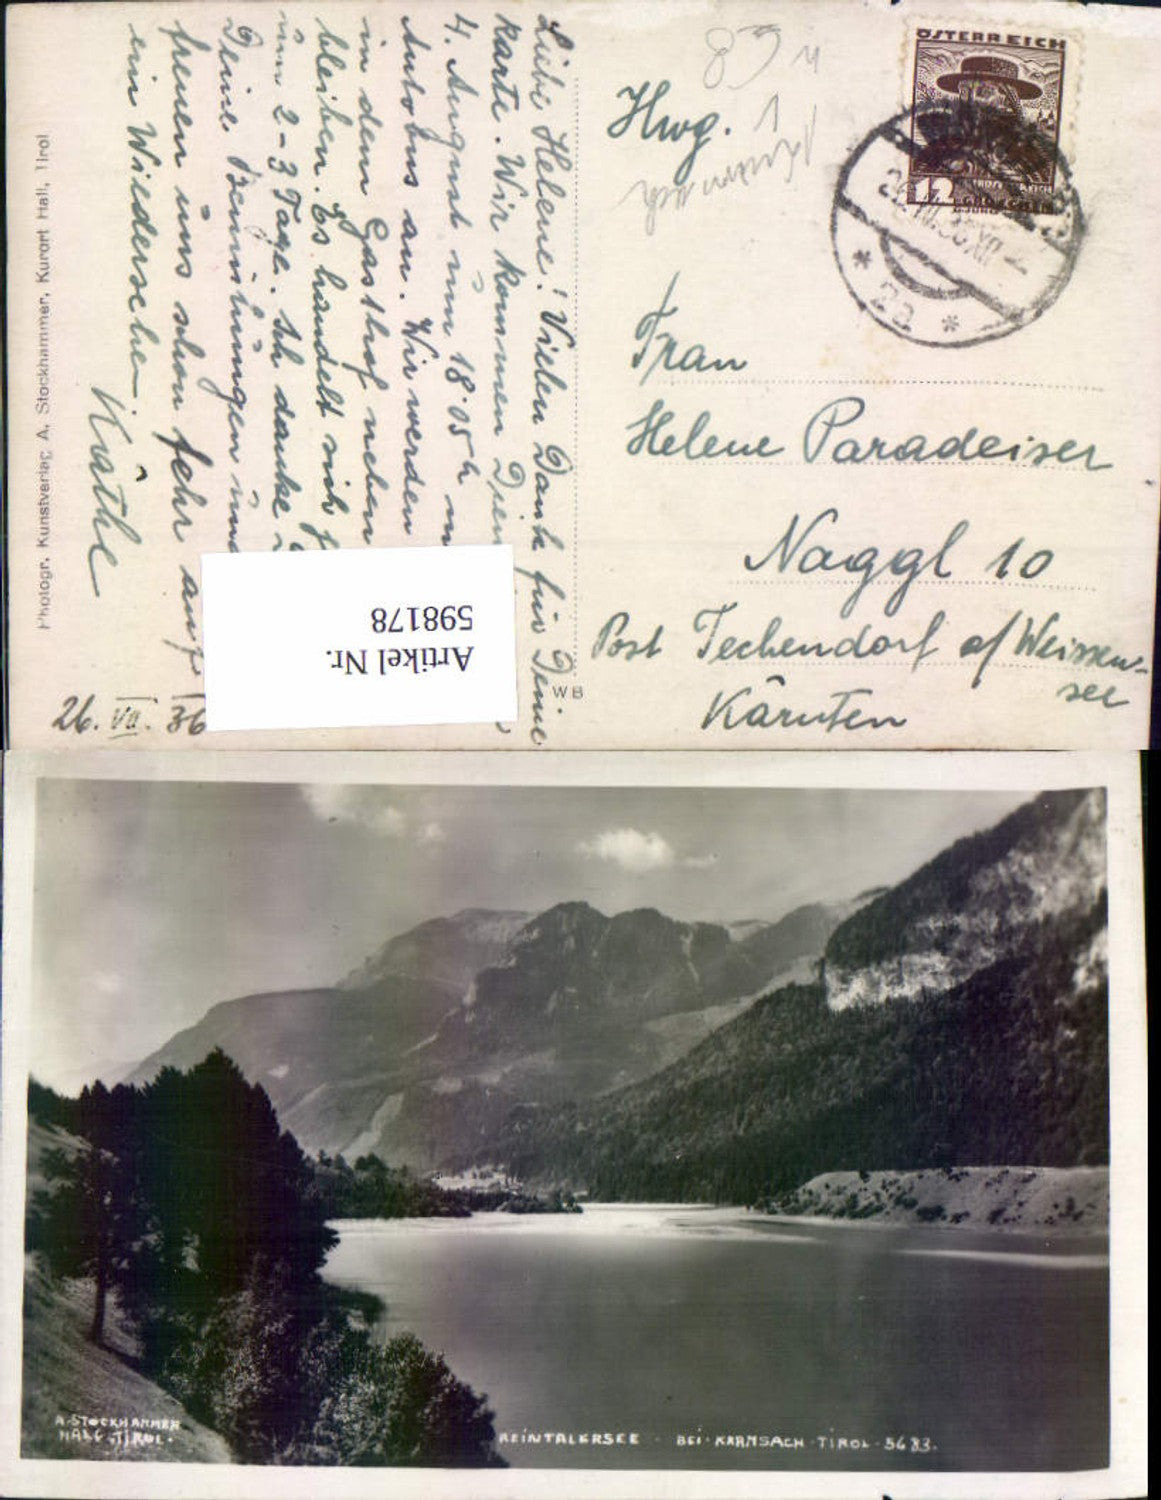 Liebe Helene! Vielen Dank für Deine
Karte. Wir kommen Dien
4. August um 18.05 h m
Autobus an. Wir werden
in dem Gasthof neben
bleiben. Es handelt sich
um 2-3 Tage. Ich danke
Deine Bemühungen und
freuen uns schon sehr auf
ein Wiedersehen
Käthe
26. VII. 36
Photogr. Kunstverlag A. Stockhammer, Kurort Hall, Tirol
WB
Artikel Nr.
598178
85
1
ÖSTERREICH
12
GROSCHEN
* 2a *
Hwg.
Frau
Helene Paradeiser
Naggl 10
Post Techendorf a/Weissen-
see
Kärnten
A. STOCKHAMMER
HALL TIROL.
REINTALERSEE · BEI · KRAMSACH · TIROL · 5683.